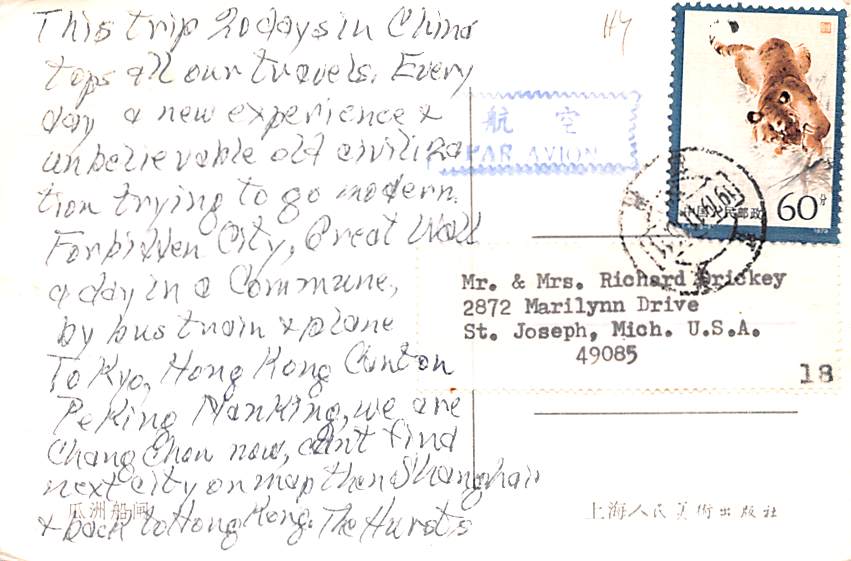 This trip 20 days in China
tops all our travels. Every
day a new experience &
unbelievable old civiliza
tion trying to go modern.
Forbidden City, Great Wall
a day in a Commune,
by bus train & plane
ToKyo, Hong Kong Canton
PeKing NanKing, we are
Chang Chou now, cant find
next city on map then Shanghai
& back to Hong Kong. The Hursts
瓜洲船闸
HY
航 空
PAR AVION
中国人民邮政
60分
1979
Mr. & Mrs. Richard
2872 Marilynn Drive
St. Joseph, Mich. U.S.A.
49085
18
上海人民美術出版社